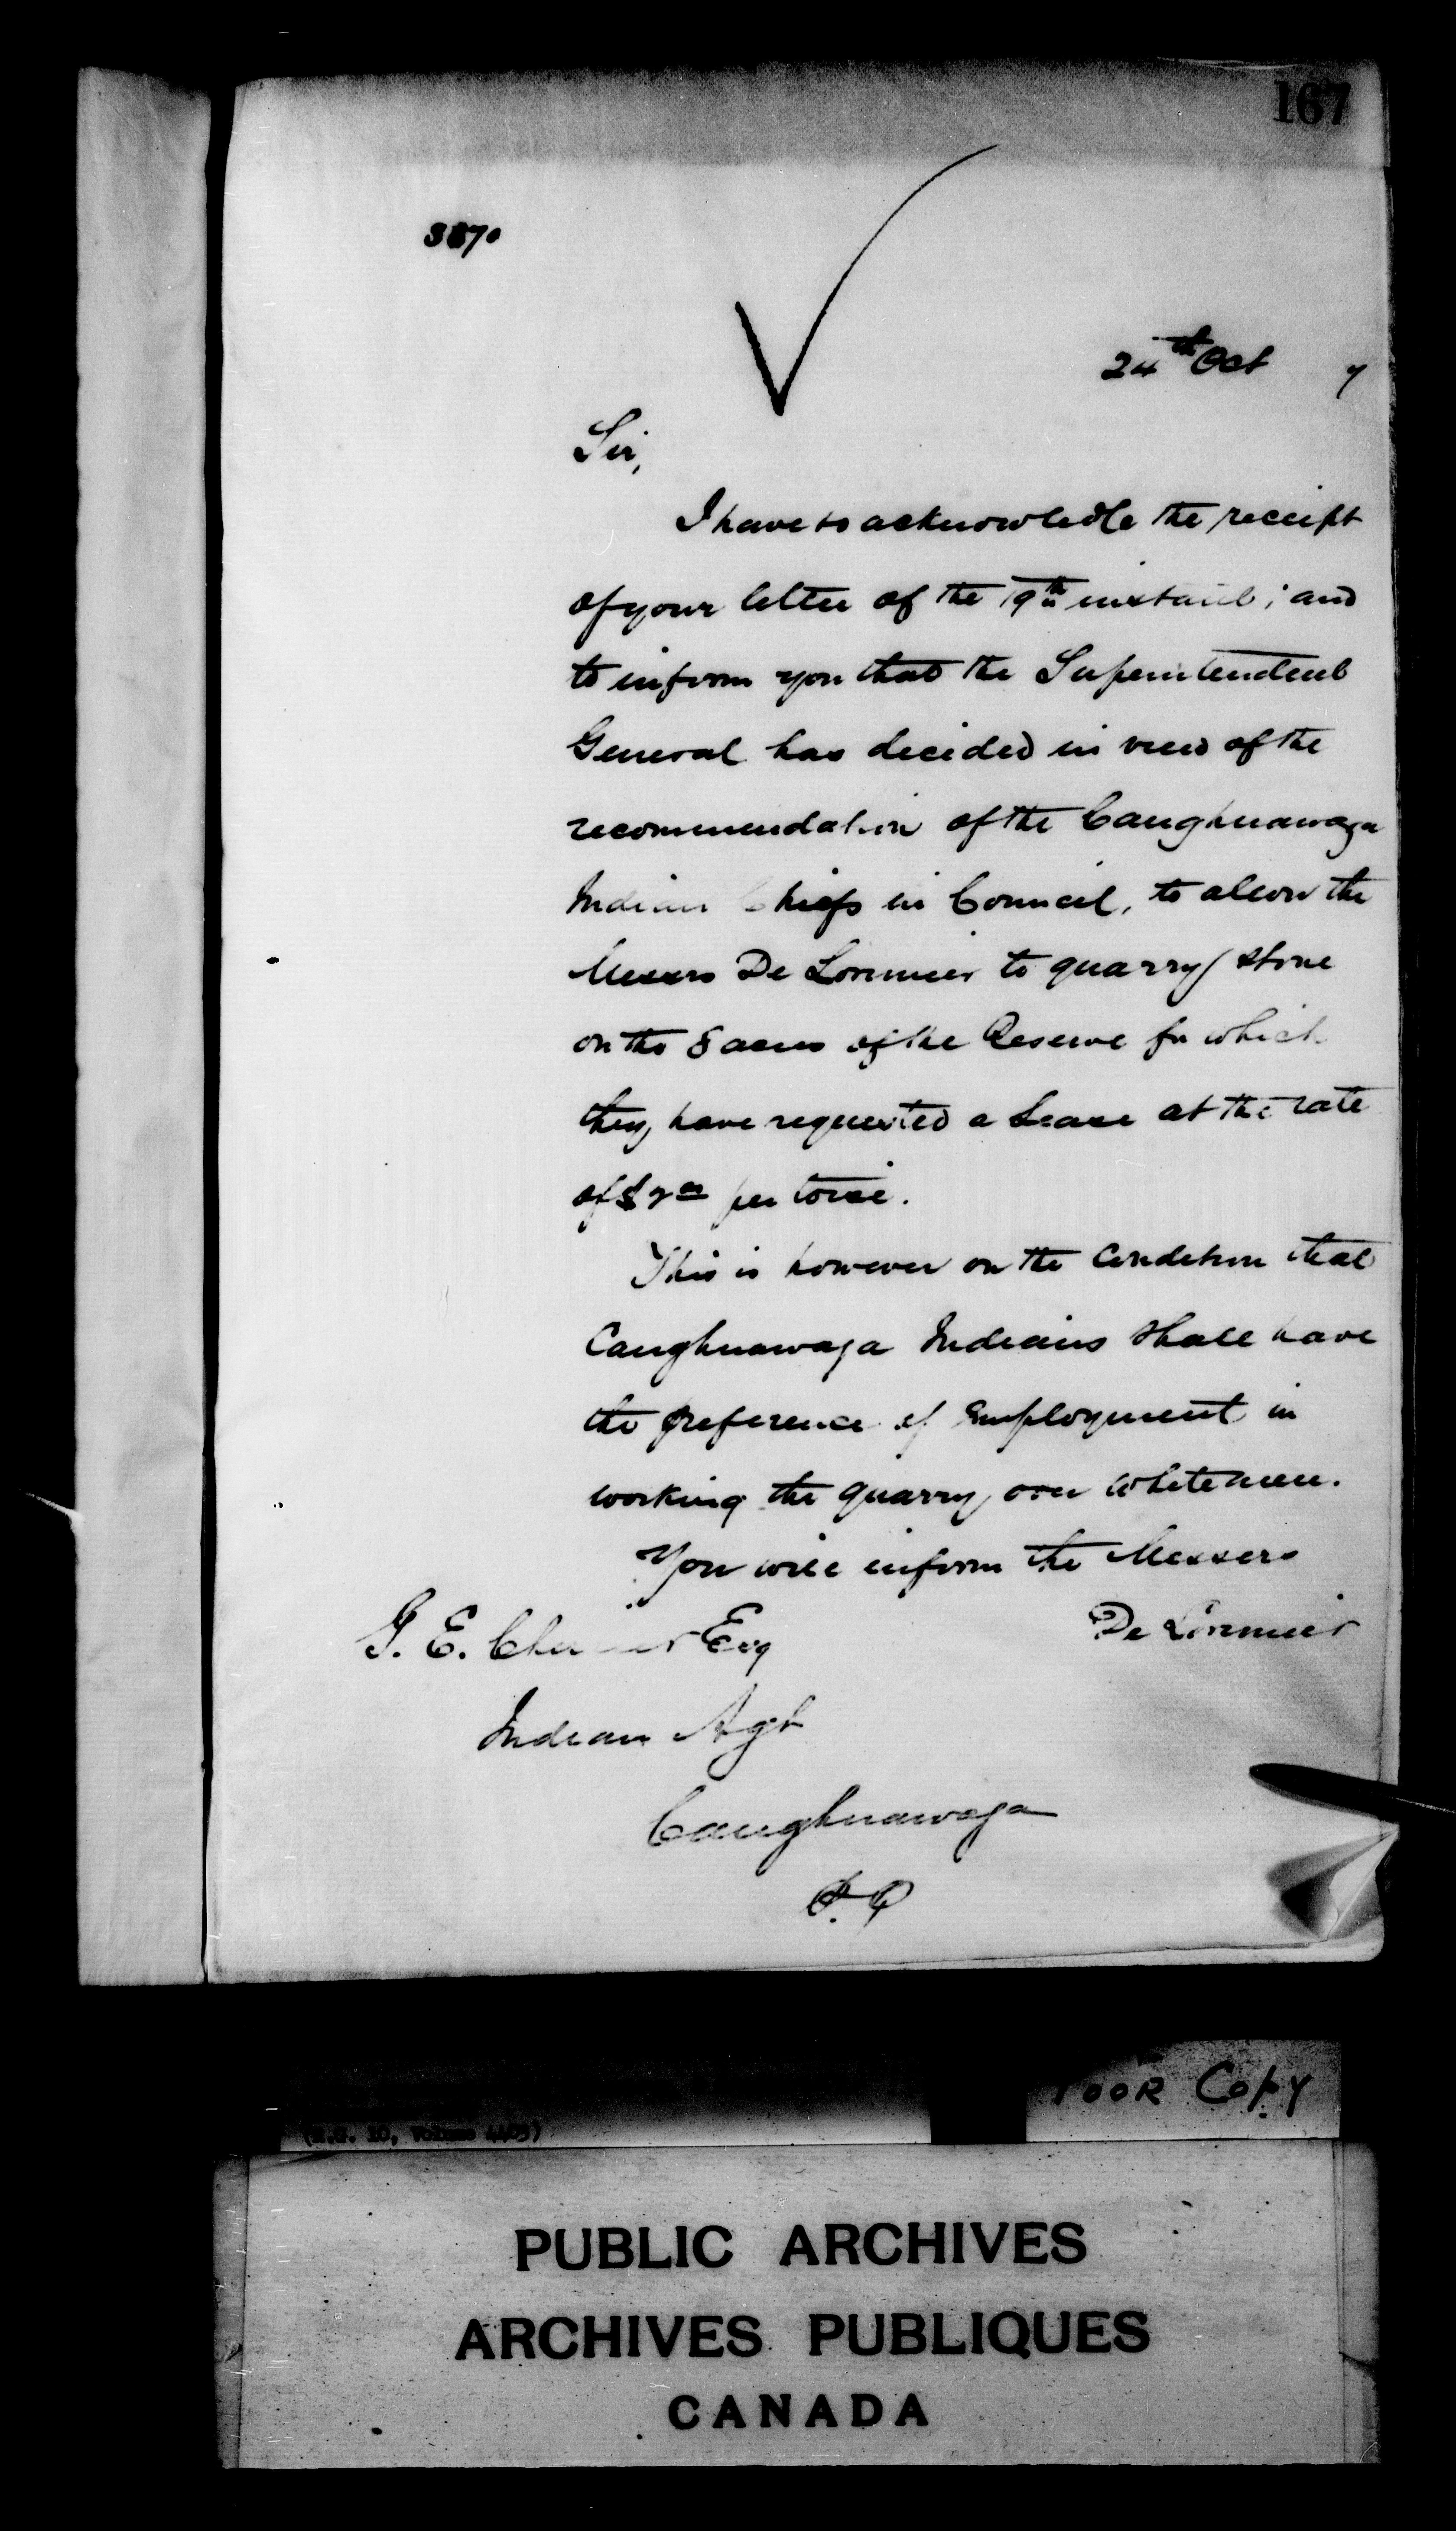 167
24th Oct 7
Sir,
I have to acknowledge the receipt
of your letter of the 19th instant; and
to inform you that the Superintendent
General has decided in view of the
recommendation of the Caughnawaga
Indian Chiefs in Council, to allow the
Messrs De Lorimier to quarry stone
on the 8 acres of the Reserve for which
they have requested a Lease at the rate
of per toise.
This is however on the Condition that
Caughnawaga Indians shall have
the preference of Employment in
working the quarry, over White men.
You will inform the Messers
De Lorimier
G. E. Esq
Indian Agt
Caughnawaga
P.Q
Poor Copy
(R.G. 10, Volume)
PUBLIC ARCHIVES
ARCHIVES PUBLIQUES
CANADA